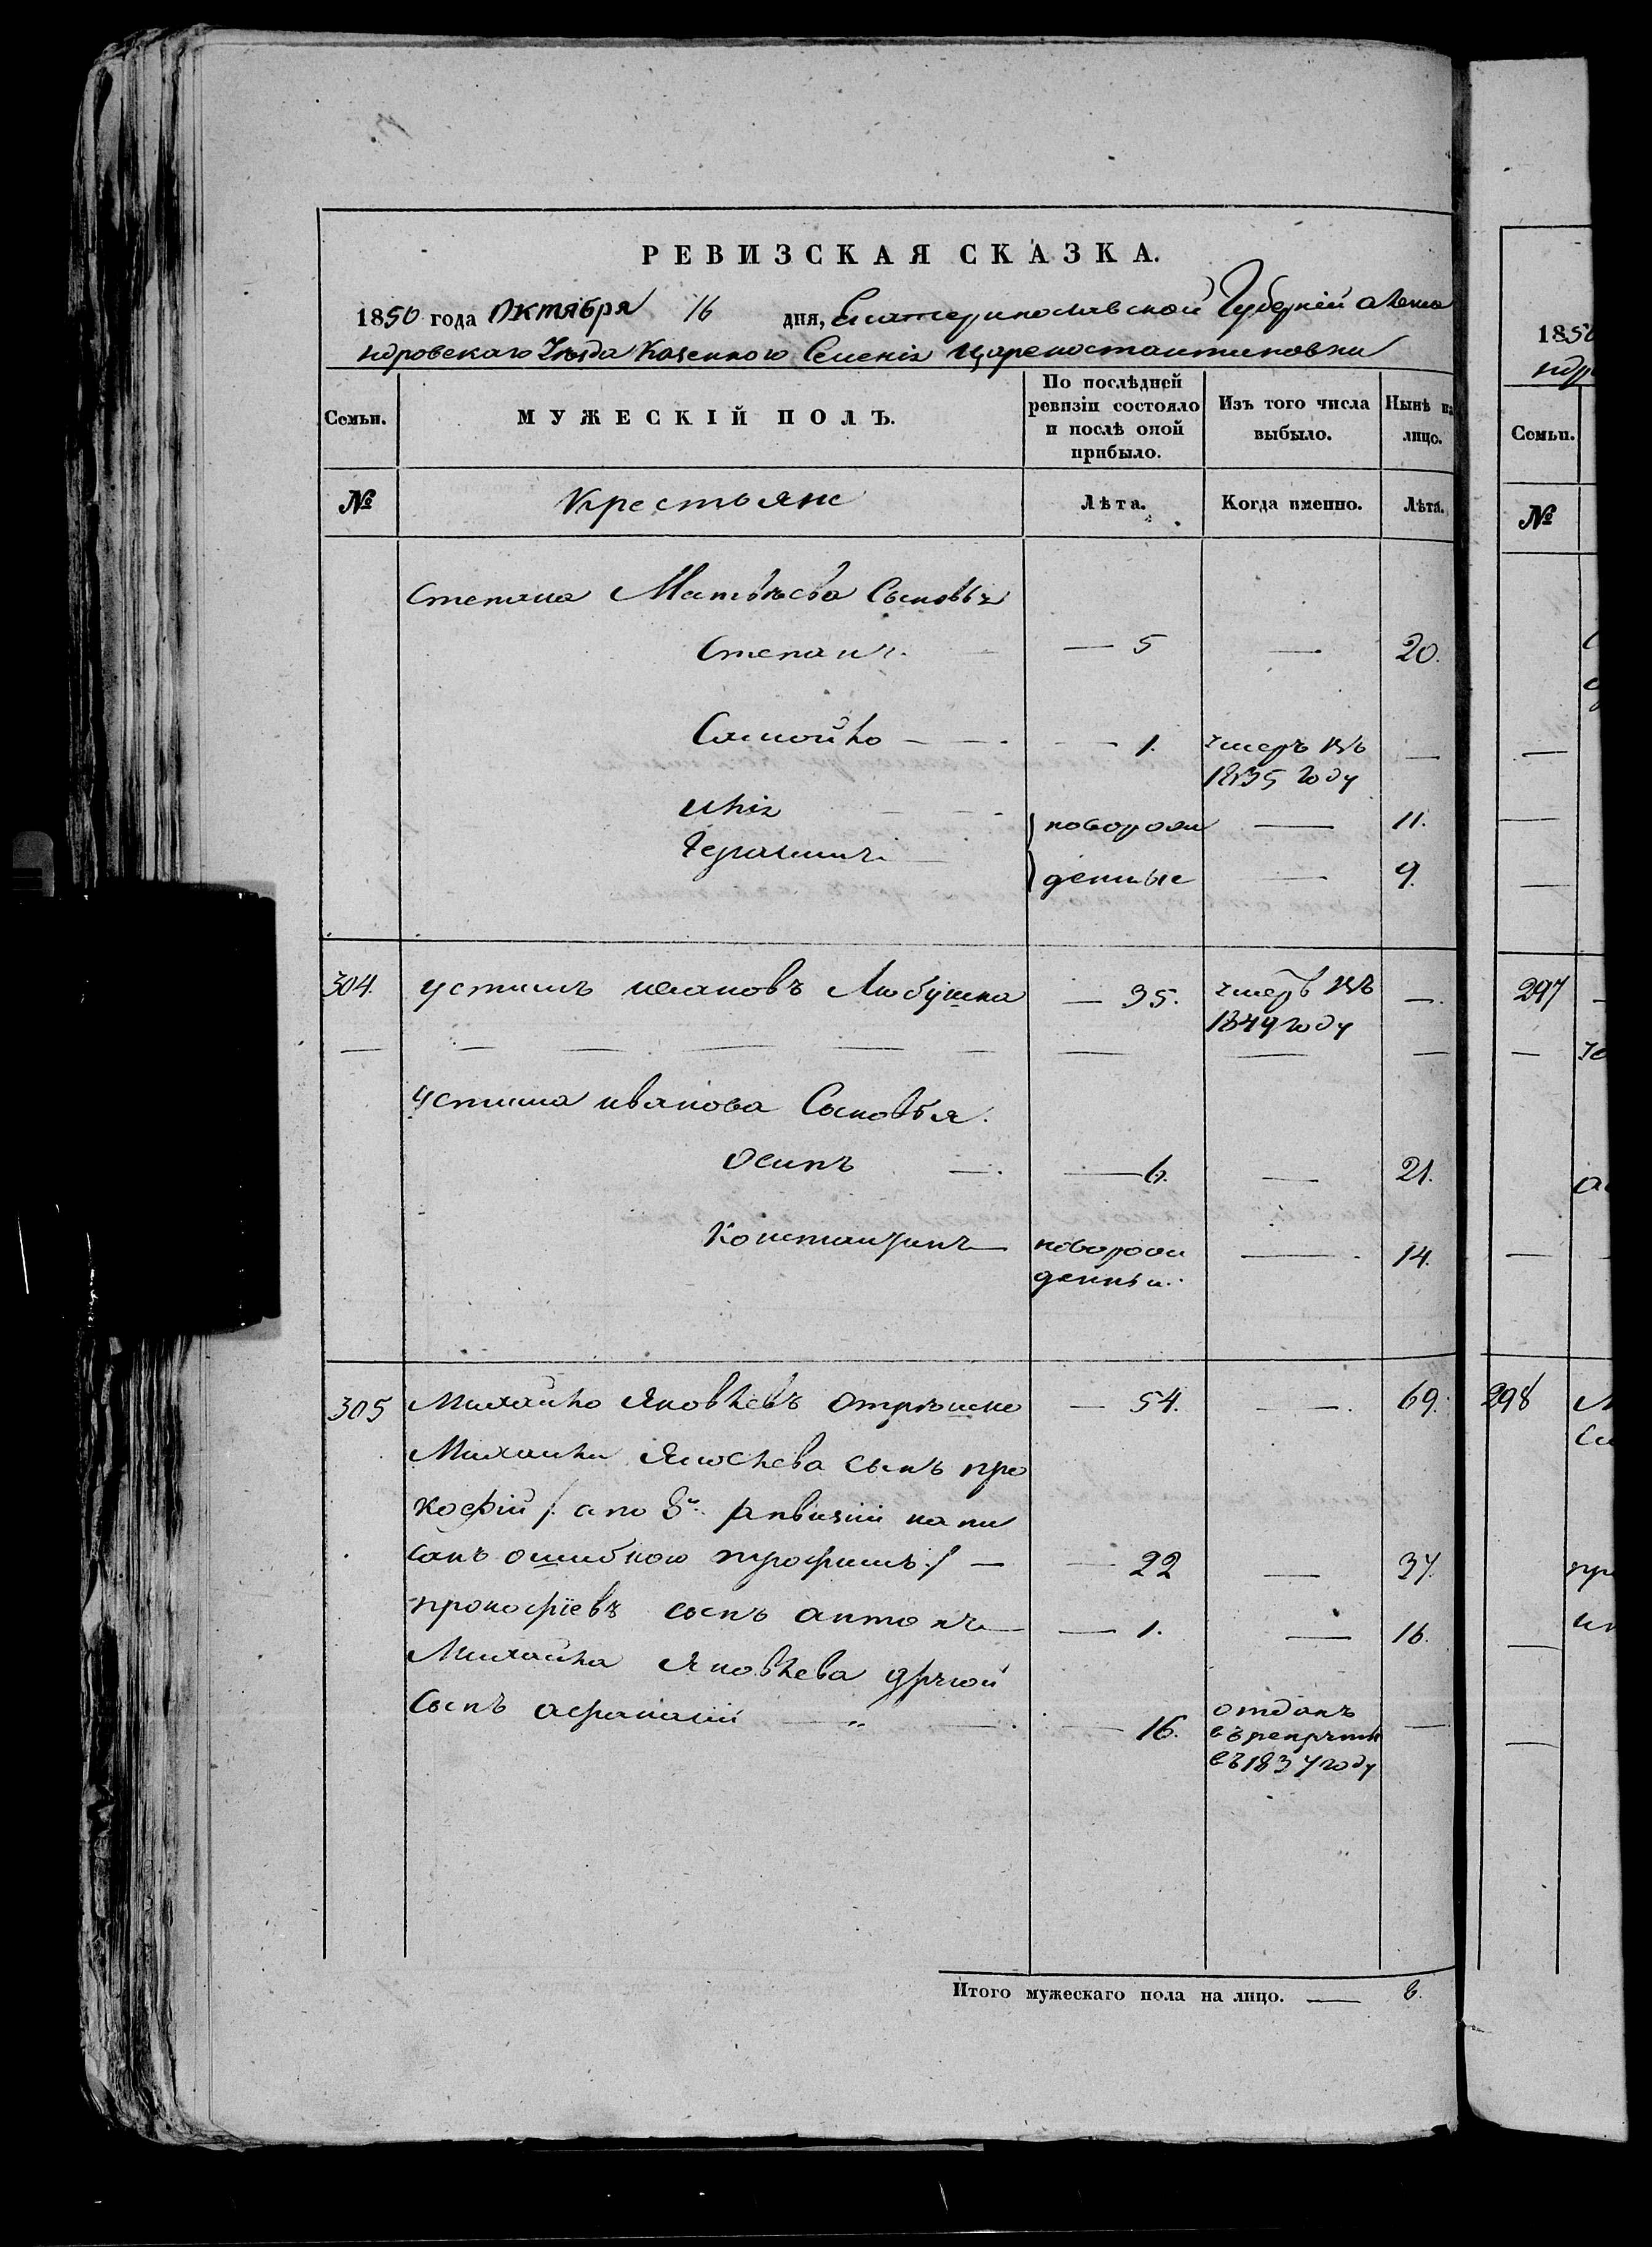 РЕВИЗСКАЯ СКАЗКА.
1850 года Октября 16 дня, Екатеринославской Губерніи Алекса
ндровскаго Уезда Казенного Селенія Цареконстантиновки
Семьи. МУЖЕСКІЙ ПОЛЪ. По послѣдней ревизіи состояло и послѣ оной прибыло. Изъ того числа выбыло. Нынѣ на лицо.
№ Крестьяне Лѣта. Когда именно. Лѣта.
Степана Матвѣева Сыновья
Степанъ. — 5 — 20.
Самойло — — 1. умеръ въ 1835 году —
Илія — новорож — 11.
Герасимъ — денные — 9.
304. устимъ ивановъ Любушка — 35. умеръ въ 1849 году —
устима иванова Сыновья.
осипъ — — 6. — 21.
Константинъ — новорож денный. — 14.
305 Михайло Яковлевъ Отрешко — 54. — 69.
Михайлы Яковлева сынъ про
кофій /: а по 8й ревизіи напи
санъ ошибкою трофимъ :/ — — 22 — 37.
прокофіевъ сынъ антонъ — — 1. — 16.
Михайла Яковлева другой
Сынъ афанасий — " — — 16. отданъ въ рекруты въ 1837 году —
Итого мужескаго пола на лицо. — 6.
1850
ндро
Семьи.
№
297
298